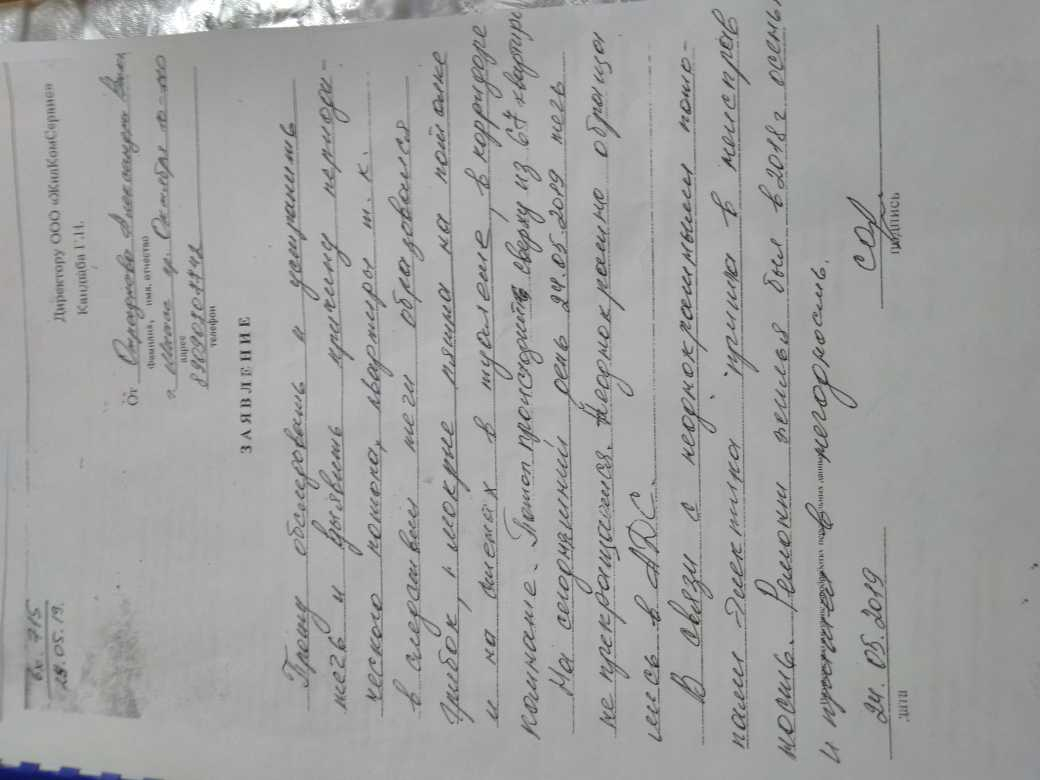 Вх. 715
24.05.19.
Директору ООО «ЖилКомСервис»
Кандыба Г.Н.
От Александра
фамилия, имя, отчество
пр. Октября 10-100
адрес
телефон
ЗАЯВЛЕНИЕ
Прошу обследовать и устранить
течь и выявить причину периоди-
ческого потопа, квартиры т. к.
в следствии течи образовался
грибок, и мокрые пятна на потолке
и на стенах в туалете, в корридоре
комнате. Потоп происходит сверху из 67 квартиры
На сегодняшний день 24.05.2019 течь
не прекращается. Неоднократно обраща
лись в АДС.
В связи с неоднократными пото-
пами электрика пришла в неисправ
ность. Ремонт жилья был в 2018 г осенью
и пришел в негодность.
24.05.2019
дата
подпись